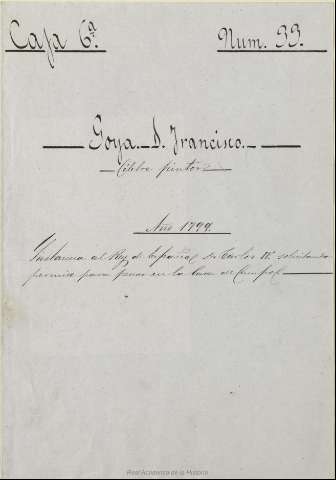 Caja 6ª
Num. 33.
Goya. D. Francisco.
Célebre pintor
Año 1799.
Instancia al Rey de España D. Carlos IV. solicitando
permiso para pasar en la Casa de Campo.
Real Academia de la Historia